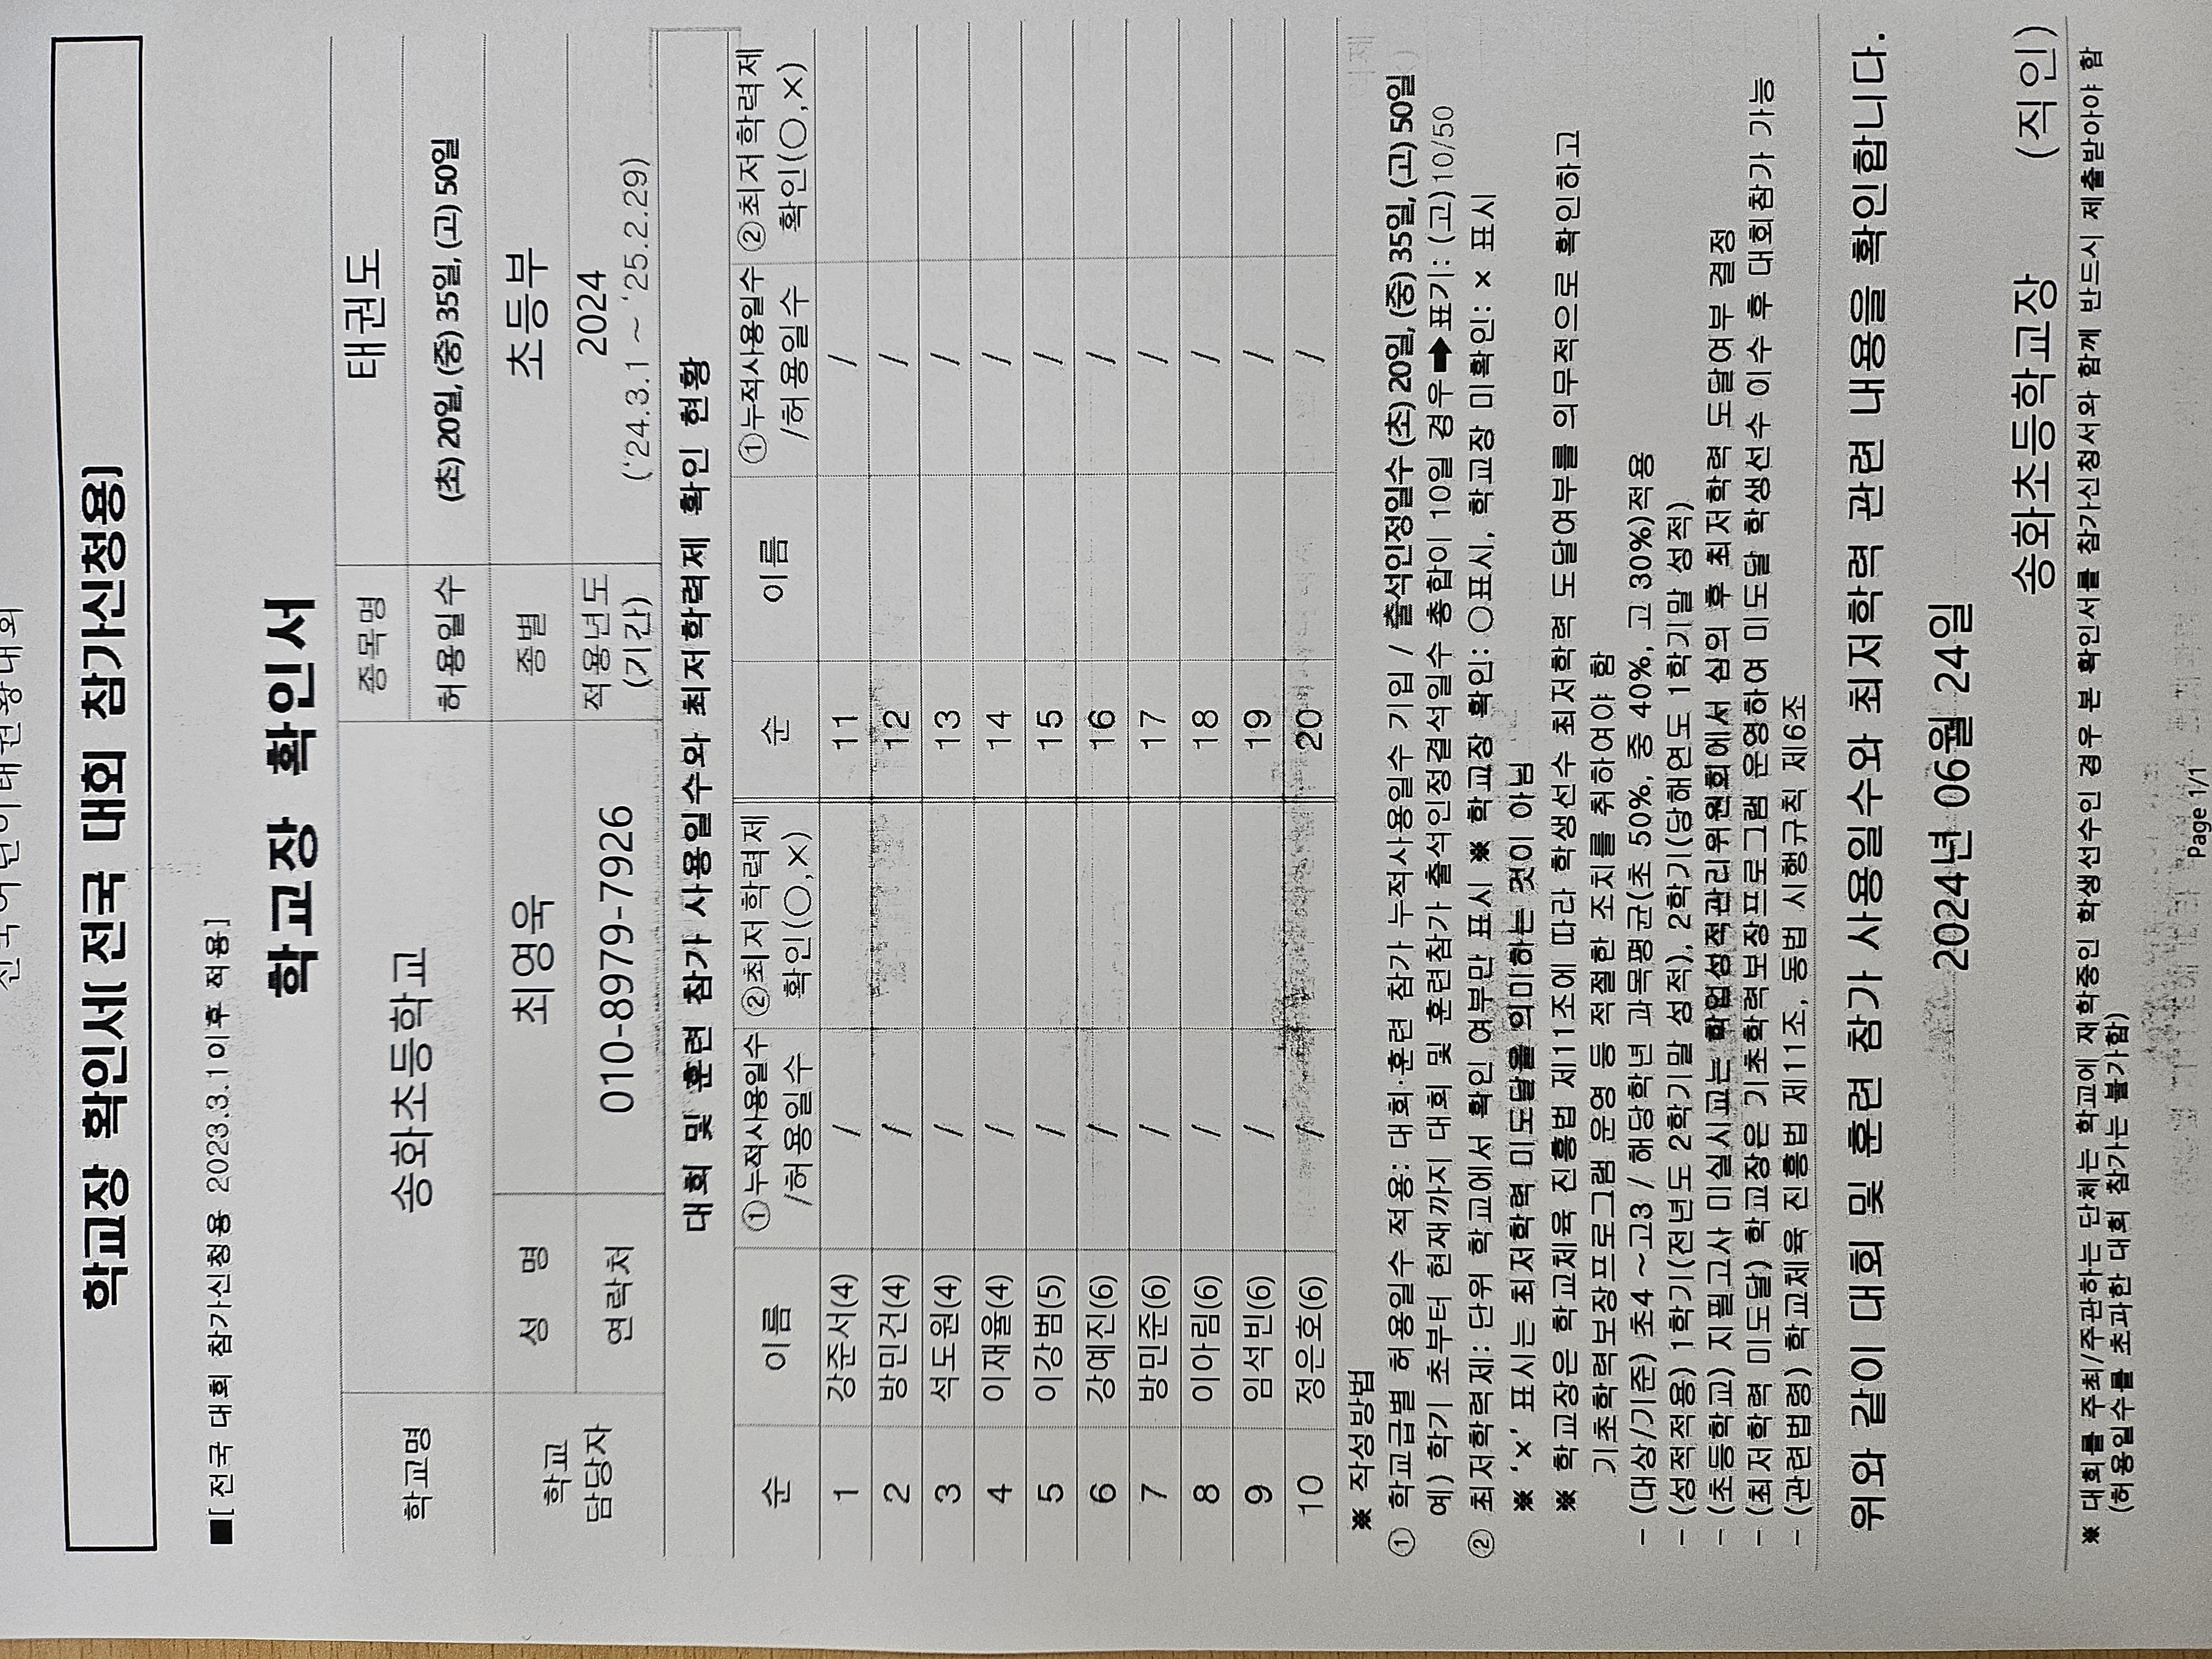 전국어린이태권왕대회
학교장 확인서( 전국 대회 참가신청용)
■[ 전국 대회 참가신청용 2023.3.1이후 적용]
학교장 확인서
학교명 송화초등학교 종목명 태권도
허용일수 (초) 20일, (중) 35일, (고) 50일
학교 담당자 성 명 최영욱 종별 초등부
연락처 010-8979-7926 적용년도 (기간) 2024 (‘24.3.1 ~ ‘25.2.29)
대회 및 훈련 참가 사용일수와 최저학력제 확인 현황
순 이름 ①누적사용일수 /허용일수 ②최저학력제 확인(○,×) 순 이름 ①누적사용일수 /허용일수 ②최저학력제 확인(○,×)
1 강준서(4) / 11 /
2 방민건(4) / 12 /
3 석도원(4) / 13 /
4 이재율(4) / 14 /
5 이강범(5) / 15 /
6 강예진(6) / 16 /
7 방민준(6) / 17 /
8 이아림(6) / 18 /
9 임석빈(6) / 19 /
10 정은호(6) / 20 /
※ 작성방법
① 학교급별 허용일수 적용: 대회·훈련 참가 누적사용일수 기입 / 출석인정일수 (초) 20일, (중) 35일, (고) 50일
예) 학기 초부터 현재까지 대회 및 훈련참가 출석인정결석일수 총합이 10일 경우 ➡ 표기: (고)10/50
② 최저학력제: 단위 학교에서 확인 여부만 표시 ※ 학교장 확인: ○표시, 학교장 미확인: × 표시
※ ‘×’ 표시는 최저학력 미도달을 의미하는 것이 아님
※ 학교장은 학교체육 진흥법 제11조에 따라 학생선수 최저학력 도달여부를 의무적으로 확인하고
기초학력보장프로그램 운영 등 적절한 조치를 취하여야 함
- (대상/기준) 초4 ~고3 / 해당학년 과목평균(초 50%, 중 40%, 고 30%)적용
- (성적적용) 1학기(전년도 2학기말 성적), 2학기(당해연도 1학기말 성적)
- (초등학교) 지필고사 미실시교는 학업성적관리위원회에서 심의 후 최저학력 도달여부 결정
- (최저학력 미도달) 학교장은 기초학력보장프로그램 운영하여 미도달 학생선수 이수 후 대회참가 가능
- (관련법령) 학교체육 진흥법 제11조, 동법 시행규칙 제6조
위와 같이 대회 및 훈련 참가 사용일수와 최저학력 관련 내용을 확인합니다.
2024년 06월 24일
송화초등학교장 (직인)
※ 대회를 주최/주관하는 단체는 학교에 재학중인 학생선수인 경우 본 확인서를 참가신청서와 함께 반드시 제출받아야 함
(허용일수를 초과한 대회 참가는 불가함)
Page 1/1